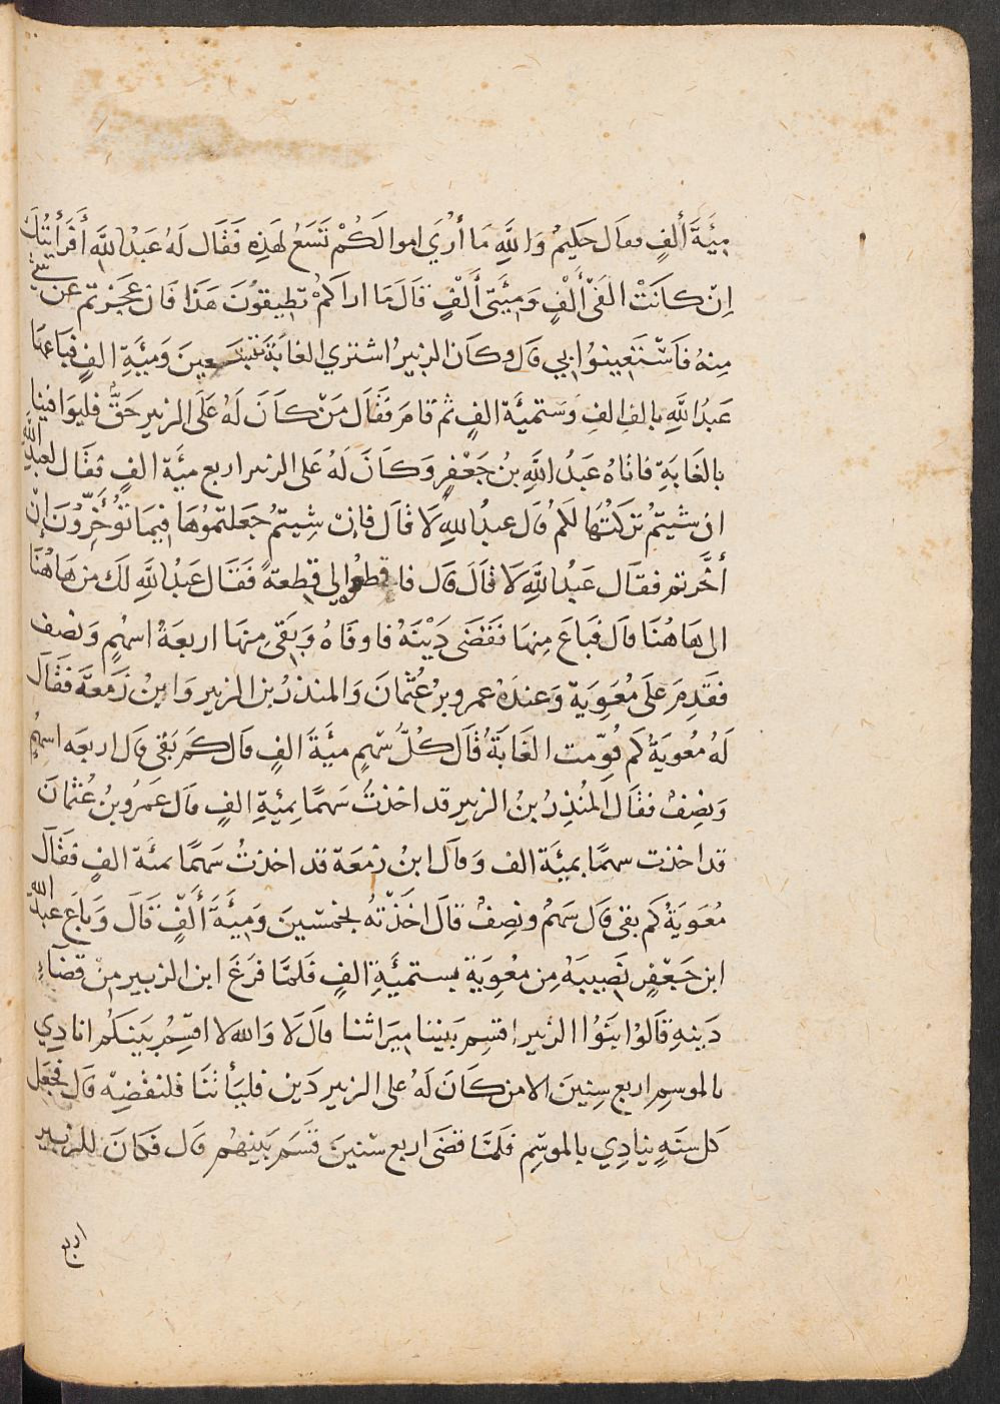 مِئَةَ أَلفٍ فقال حكيمُ وَاللَّهِ مَا أُرَي اموالَكُمْ تَسَعُ لهَذِهِ فَقَال لَهُ عَبْدُ اللَّهِ أَفَرَأَيْتُكَ
اِنْ كانَتْ الْفَيْ أَلْفٍ وَمِئَتَيْ أَلْفٍ قَالَ مَا اراكُمْ تطيقوُنَ هَذَا فَان عجَزتم عن شيْءٍ
مِنهُ فَاَسْتَعِينوُا بِي قال وكاَن الزبيرُ اشتري الغابَةَ بتسعينَ وَمِيَةِ الفٍ فبَاعهَا
عَبدُ اللَّهِ بالفِ الفِ وَستميَة الفٍ ثم قامَ فَقَالَ مَنْ كاَنَ لَهُ عَلَى الزبيرِ حَقٌّ فليوَافينا
بالغَابَةِ فاتاهُ عَبدُ اللَّهِ بنُ جَعْفرٍ وَكاَنَ لَهُ عَلى الزبير اربع ميَةِ الفٍ فَقَال لعَبدِ اللَّهِ
ان شيتُمْ تركتُهَا لكم قال عبدُ اللهِ لَا قاَل فاِنْ شِيتُمْ جَعلتموُهَا فِيمَا تؤَخِّروُنَ اِنْ
أَخَّرتم فقاَل عَبدُ اللَّهِ لَا قاَلَ قال فاقطعوُا لي قِطعةً فَقَال عَبدُ اللَّهِ لكَ مِن هَاهُنَا
الى هَاهُنَا قال فَباعَ مِنهَا فَقَضَى دَيْنَهُ فاوفَاهُ وَبَقىَ مِنهَا اربعَةُ اسهُمٍ وَنصف
فقَدِمَ عَلَى مُعَوِيَة وَعندَهُ عمرو بنُ عُثْمَانَ وَالمنذرُ بن الزبيرِ وَابنُ زَمعَة فَقَالَ
لَهُ مُعوِيَةُ كَم قُوِّمت الغَابَةُ قَال كُلُّ سَهمٍ مئَةَ الفٍ قال كَم بَقىَ قال اربعَه اسهُمٍ
وَنصِفٌ فقَال المُنذِرُ بنُ الزبيرِ قد اخذتُ سَهمًا بمِئَةِ الفٍ قال عَمرُو بنُ عُثْمَانَ
قد اخذت سهمًا بميَة الف وَقال ابنُ زمعَة قد اخذتُ سَهمًا بمئَة الفٍ فَقَال
مُعَوِيَةُ كَم بقىَ قال سَهمُ وَنصِفٌ قَالَ اخَذْتُهُ بخمسينَ وَمِيَةَ أَلْفٍ قَالَ وَبَاعَ عَبدُ اللَّهِ
ابن جَعفرٍ نصِيبَهُ مِن مُعوِيَة بستميَةِ الفٍ فَلمَّا فَرَغَ ابن الزبيرِ مِنْ قضَاءِ
دَينهِ قَالوُا بَنوُا الزبيرِ اقسِم بَيننا مِيرَاثنا قاَل لَا وَالله لا اقسِمُ بَينَكُم انادِي
بالموسمِ اربع سِنينَ الا من كَانَ لَهُ على الزبيرِ دَين فليأتنَا فلنقضِهْ قال فجَعَل
كل سنَهٍ ينادِي بالموسِمِ فلمَّا قضَى اربع سنينَ قَسَم بَينهُم قال فكاَنَ للزبَير
اربع